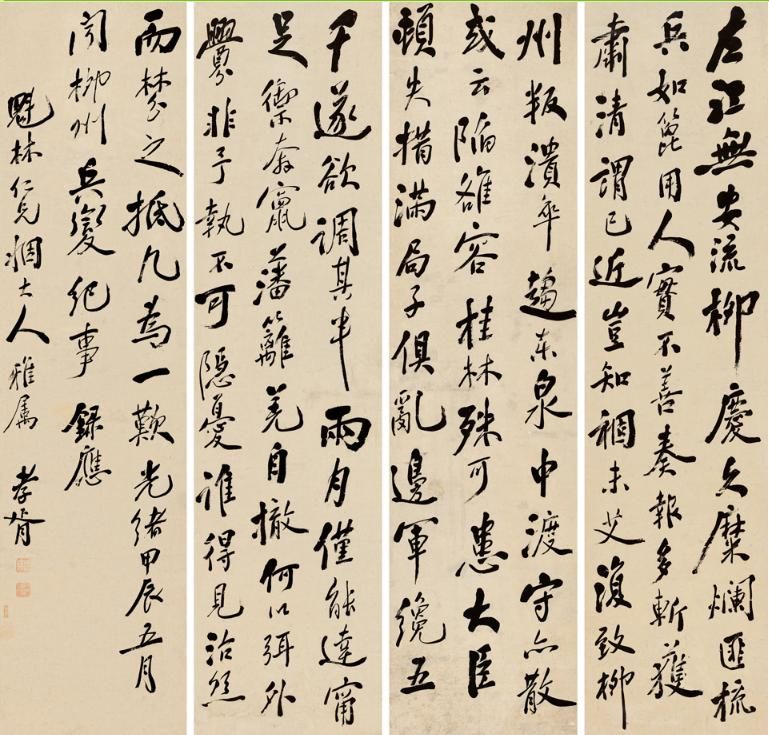 左江無安流柳慶久糜爛匪梳
兵如篦用人實不善奏報多斬獲
肅清謂已近豈知禍未艾復致柳
州叛潰卒趨東泉中渡守亦散
或云陷雒容桂林殊可患大臣
頓失措滿局子俱亂邊軍纔五
千遂欲調其半兩月僅能達甯
足禦奔竄藩籬羌自撤何以弭外
釁非予執不可隱憂誰得見治絲
而棼之抵几為一歎光緒甲辰五月
聞柳州兵變紀事 錄應
魁林仁兄姻大人雅屬 孝胥